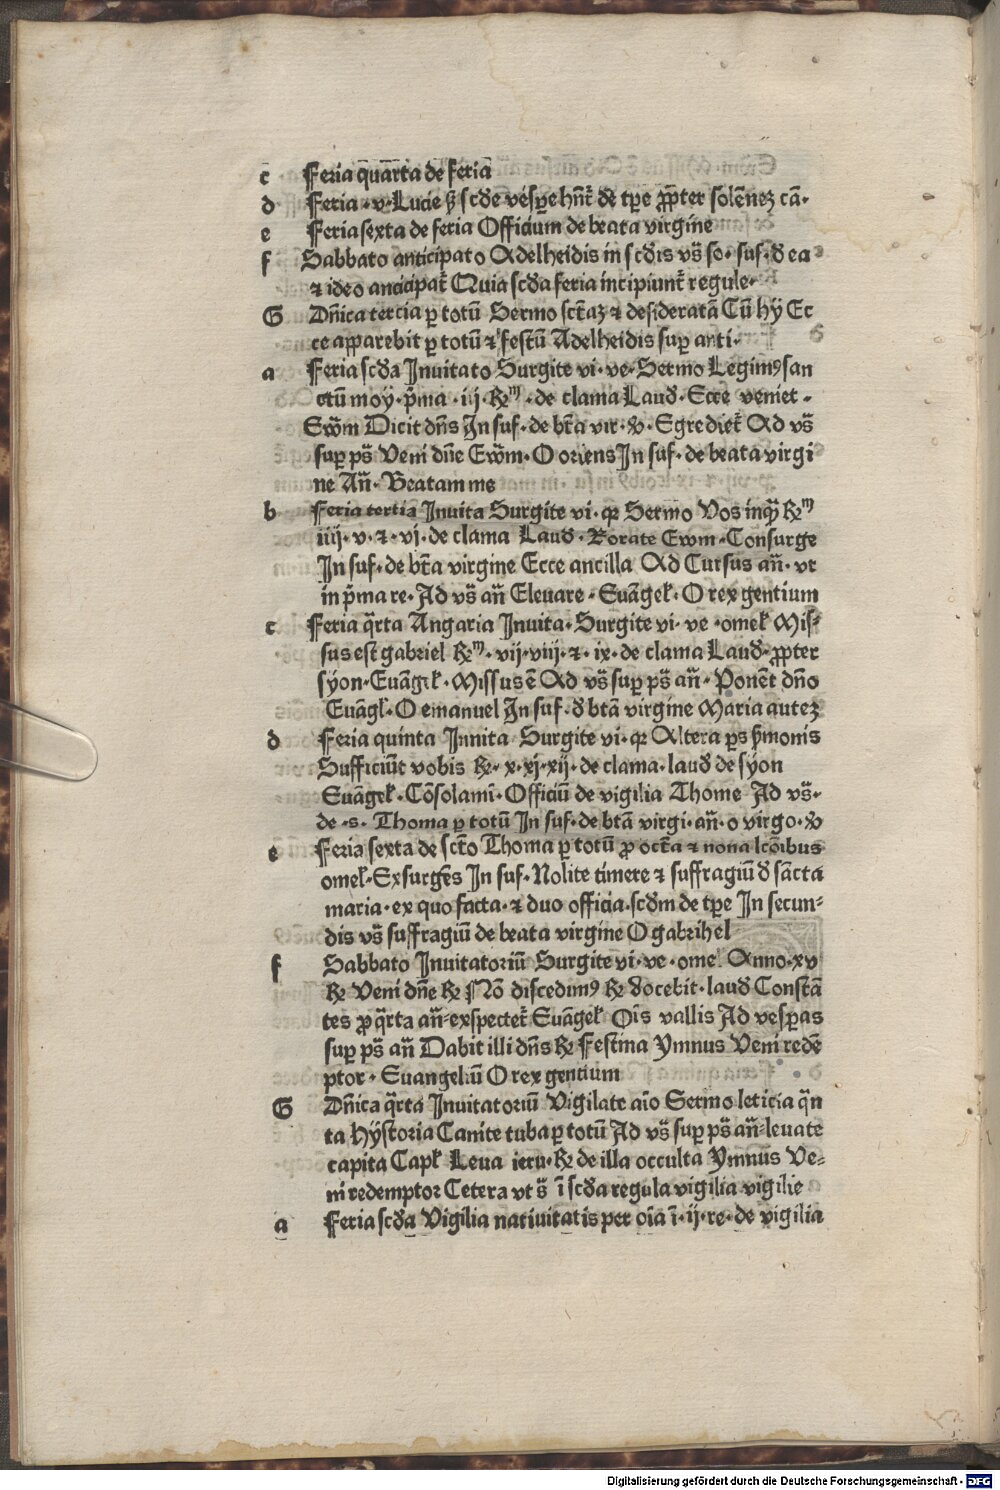 c Feria quarta de feria
d Feria · v · Lucie ꝫ scďe vespe hñt de tpe ꝓpter solēnez cā·
e Feria sexta de feria Officium de beata virgine
f Sabbato anticipato Adelheidis in scďis vs̄ so· suf· ď ea
⁊ ideo anticipat̄ Quia scďa feria incipiunt̄ regule·
G Dñica tercia p totū Sermo sct̄az ⁊ desideratā Cū hy Ec
ce apparebit p totū ⁊ festū Adelheidis sup anti·
a Feria scďa Inuitato Surgite vi· ve· Sermo Legimꝰ san
ctū moy· p̄ma · iij ℞m · de clama Lauď· Ecce veniet ·
Ew̄m Dicit dñs In suf· de bt̄a vir· ℣· Egrediet̄ Ad vs̄
sup ps̄ Veni dñe Ew̄m· O oriens In suf· de beata virgi
ne Añ· Beatam me
b Feria tertia Inuita Surgite vi· qr Sermo Vos inq̄ ℞m
iiij· v· ⁊· vj· de clama Lauď· Rorate Ewm· Consurge
In suf· de bt̄a virgine Ecce ancilla Ad Cursus añ· vt
in p̄ma re· Ad vs̄ añ Eleuare· Euāgeł· O rex gentium
c Feria q̄rta Angaria Inuita· Surgite vi· ve· omeł Mis⸗
sus est gabriel ℞m· vij· viij· ⁊· ix· de clama Lauď· ꝓpter
syon· Euāgł· Missus ē Ad vs̄ sup ps̄ añ· Ponēt dño
Euāgł· O emanuel In suf· ď btā virgine Maria autez
d Feria quinta Innita Surgite vi· qr Altera ps s̄monis
Sufficiūt vobis ℞· x· xj· xij· de clama· lauď de syon
Euāgeł· Cōsolamī· Officiū de vigilia Thome Ad vs̄·
de · s· Thoma p totū In suf· de btā virgi· añ· o virgo· ℣
e Feria sexta de sctō Thoma p totū ꝓ octa ⁊ nona lcōibus
omeł· Exsurgēs In suf· Nolite timere ⁊ suffragiū ď sācta
maria· ex quo facta· ⁊ duo officia· scďm de tpe In secun⸗
dis vs̄ suffragiū de beata virgine O gabrihel
f Sabbato Inuitatoriū Surgite vi· ve· ome· Anno· xv
℞ Veni dñe ℞ Nō discedimꝰ ℞ docebit· lauď Constā
tes ꝓ q̄rta añ· exspectet̄ Euāgeł Oīs vallis Ad vesꝑas
sup ps̄ añ Dabit illi dñs ℞ Festina Ymnus Veni redē
ptor· Euangeliū O rex gentium
G Dñica q̄rta Inuitatoriū Vigilate aīo Sermo leticia q̄n
ta Hystoria Canite tuba p totū Ad vs̄ sup ps̄ añ· leuate
capita Capł Leua ieru· ℞ de illa occulta Ymnus Ve⸗
ni redemptor Cetera vt s̄ ī scďa regula vigilia vigilie
a Feria scďa Vigilia natiuitatis per oīa ī· ij· re· de vigilia
Digitalisierung gefördert durch die Deutsche Forschungsgemeinschaft - DFG